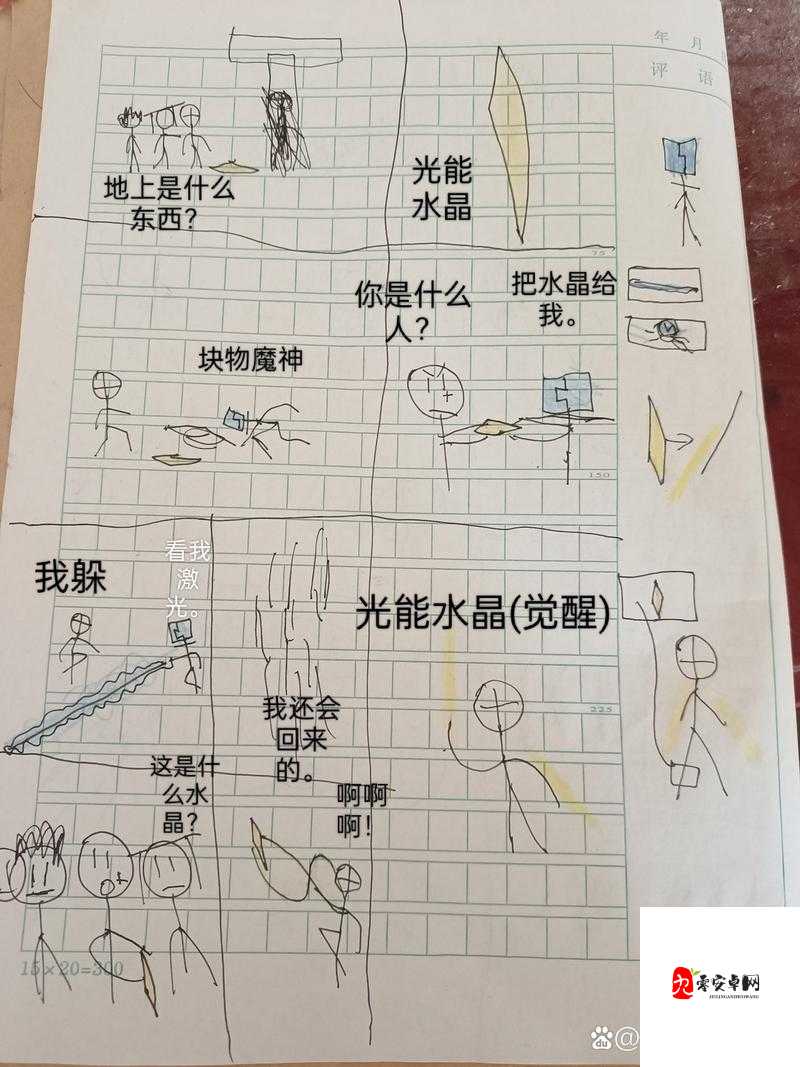 年 月
评 语
地上是什么
东西？
光能
水晶
75
你是什么
人？
把水晶给
我。
块物魔神
150
我躲
看我
激
光。
光能水晶(觉醒)
225
我还会
回来
的。
这是什
么水
晶？
啊啊
啊！
15×20=300
零安卓网
JIULINGANDROIDWANG
du @